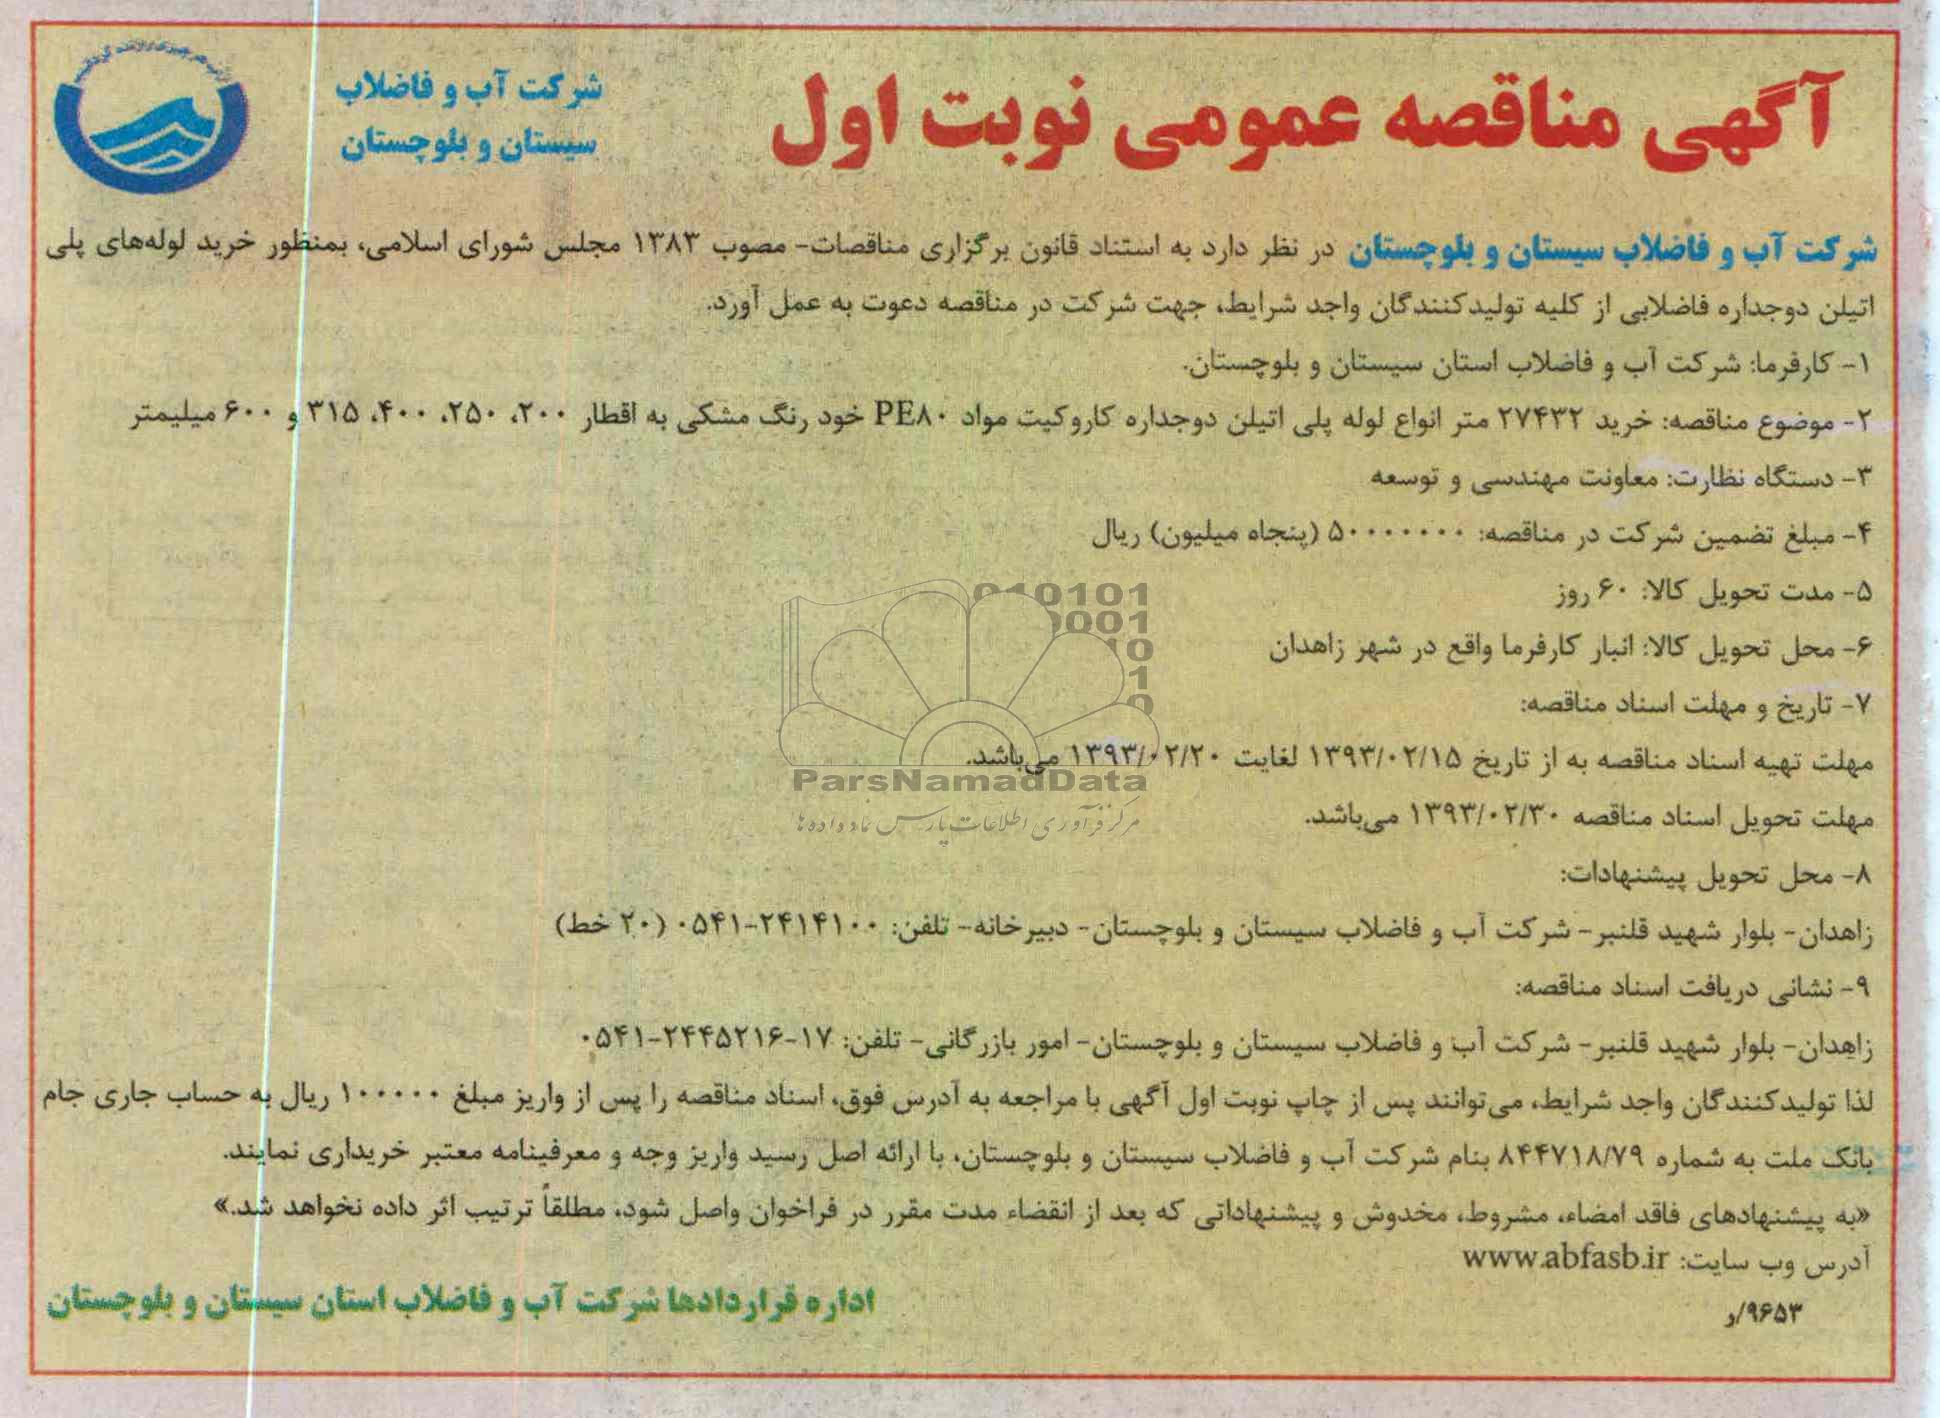 آگهی مناقصه عمومی نوبت اول
شرکت آب و فاضلاب
سیستان و بلوچستان
شرکت آب و فاضلاب سیستان و بلوچستان در نظر دارد به استناد قانون برگزاری مناقصات- مصوب ۱۳۸۳ مجلس شورای اسلامی، بمنظور خرید لوله‌های پلی
اتیلن دوجداره فاضلابی از کلیه تولیدکنندگان واجد شرایط، جهت شرکت در مناقصه دعوت به عمل آورد.
۱- کارفرما: شرکت آب و فاضلاب استان سیستان و بلوچستان.
۲- موضوع مناقصه: خرید ۲۷۴۳۲ متر انواع لوله پلی اتیلن دوجداره کاروکیت مواد PE۸۰ خود رنگ مشکی به اقطار ۲۰۰، ۲۵۰، ۴۰۰، ۳۱۵ و ۶۰۰ میلیمتر
۳- دستگاه نظارت: معاونت مهندسی و توسعه
۴- مبلغ تضمین شرکت در مناقصه: ۵۰۰۰۰۰۰۰ (پنجاه میلیون) ریال
۵- مدت تحویل کالا: ۶۰ روز
۶- محل تحویل کالا: انبار کارفرما واقع در شهر زاهدان
۷- تاریخ و مهلت اسناد مناقصه:
مهلت تهیه اسناد مناقصه به از تاریخ ۱۳۹۳/۰۲/۱۵ لغایت ۱۳۹۳/۰۲/۲۰ می‌باشد.
مهلت تحویل اسناد مناقصه ۱۳۹۳/۰۲/۳۰ می‌باشد.
۸- محل تحویل پیشنهادات:
زاهدان- بلوار شهید قلنبر- شرکت آب و فاضلاب سیستان و بلوچستان- دبیرخانه- تلفن: ۰۵۴۱-۲۴۱۴۱۰۰ (۲۰ خط)
۹- نشانی دریافت اسناد مناقصه:
زاهدان- بلوار شهید قلنبر- شرکت آب و فاضلاب سیستان و بلوچستان- امور بازرگانی- تلفن: ۱۷-۰۵۴۱-۲۴۴۵۲۱۶
لذا تولیدکنندگان واجد شرایط، می‌توانند پس از چاپ نوبت اول آگهی با مراجعه به آدرس فوق، اسناد مناقصه را پس از واریز مبلغ ۱۰۰۰۰۰ ریال به حساب جاری جام
بانک ملت به شماره ۸۴۴۷۱۸/۷۹ بنام شرکت آب و فاضلاب سیستان و بلوچستان، با ارائه اصل رسید واریز وجه و معرفینامه معتبر خریداری نمایند.
«به پیشنهادهای فاقد امضاء، مشروط، مخدوش و پیشنهاداتی که بعد از انقضاء مدت مقرر در فراخوان واصل شود، مطلقاً ترتیب اثر داده نخواهد شد.»
آدرس وب سایت: www.abfasb.ir
اداره قراردادها شرکت آب و فاضلاب استان سیستان و بلوچستان
۹۶۵۳/و
ParsNamadData
مرکز فرآوری اطلاعات پارس نماد داده ها